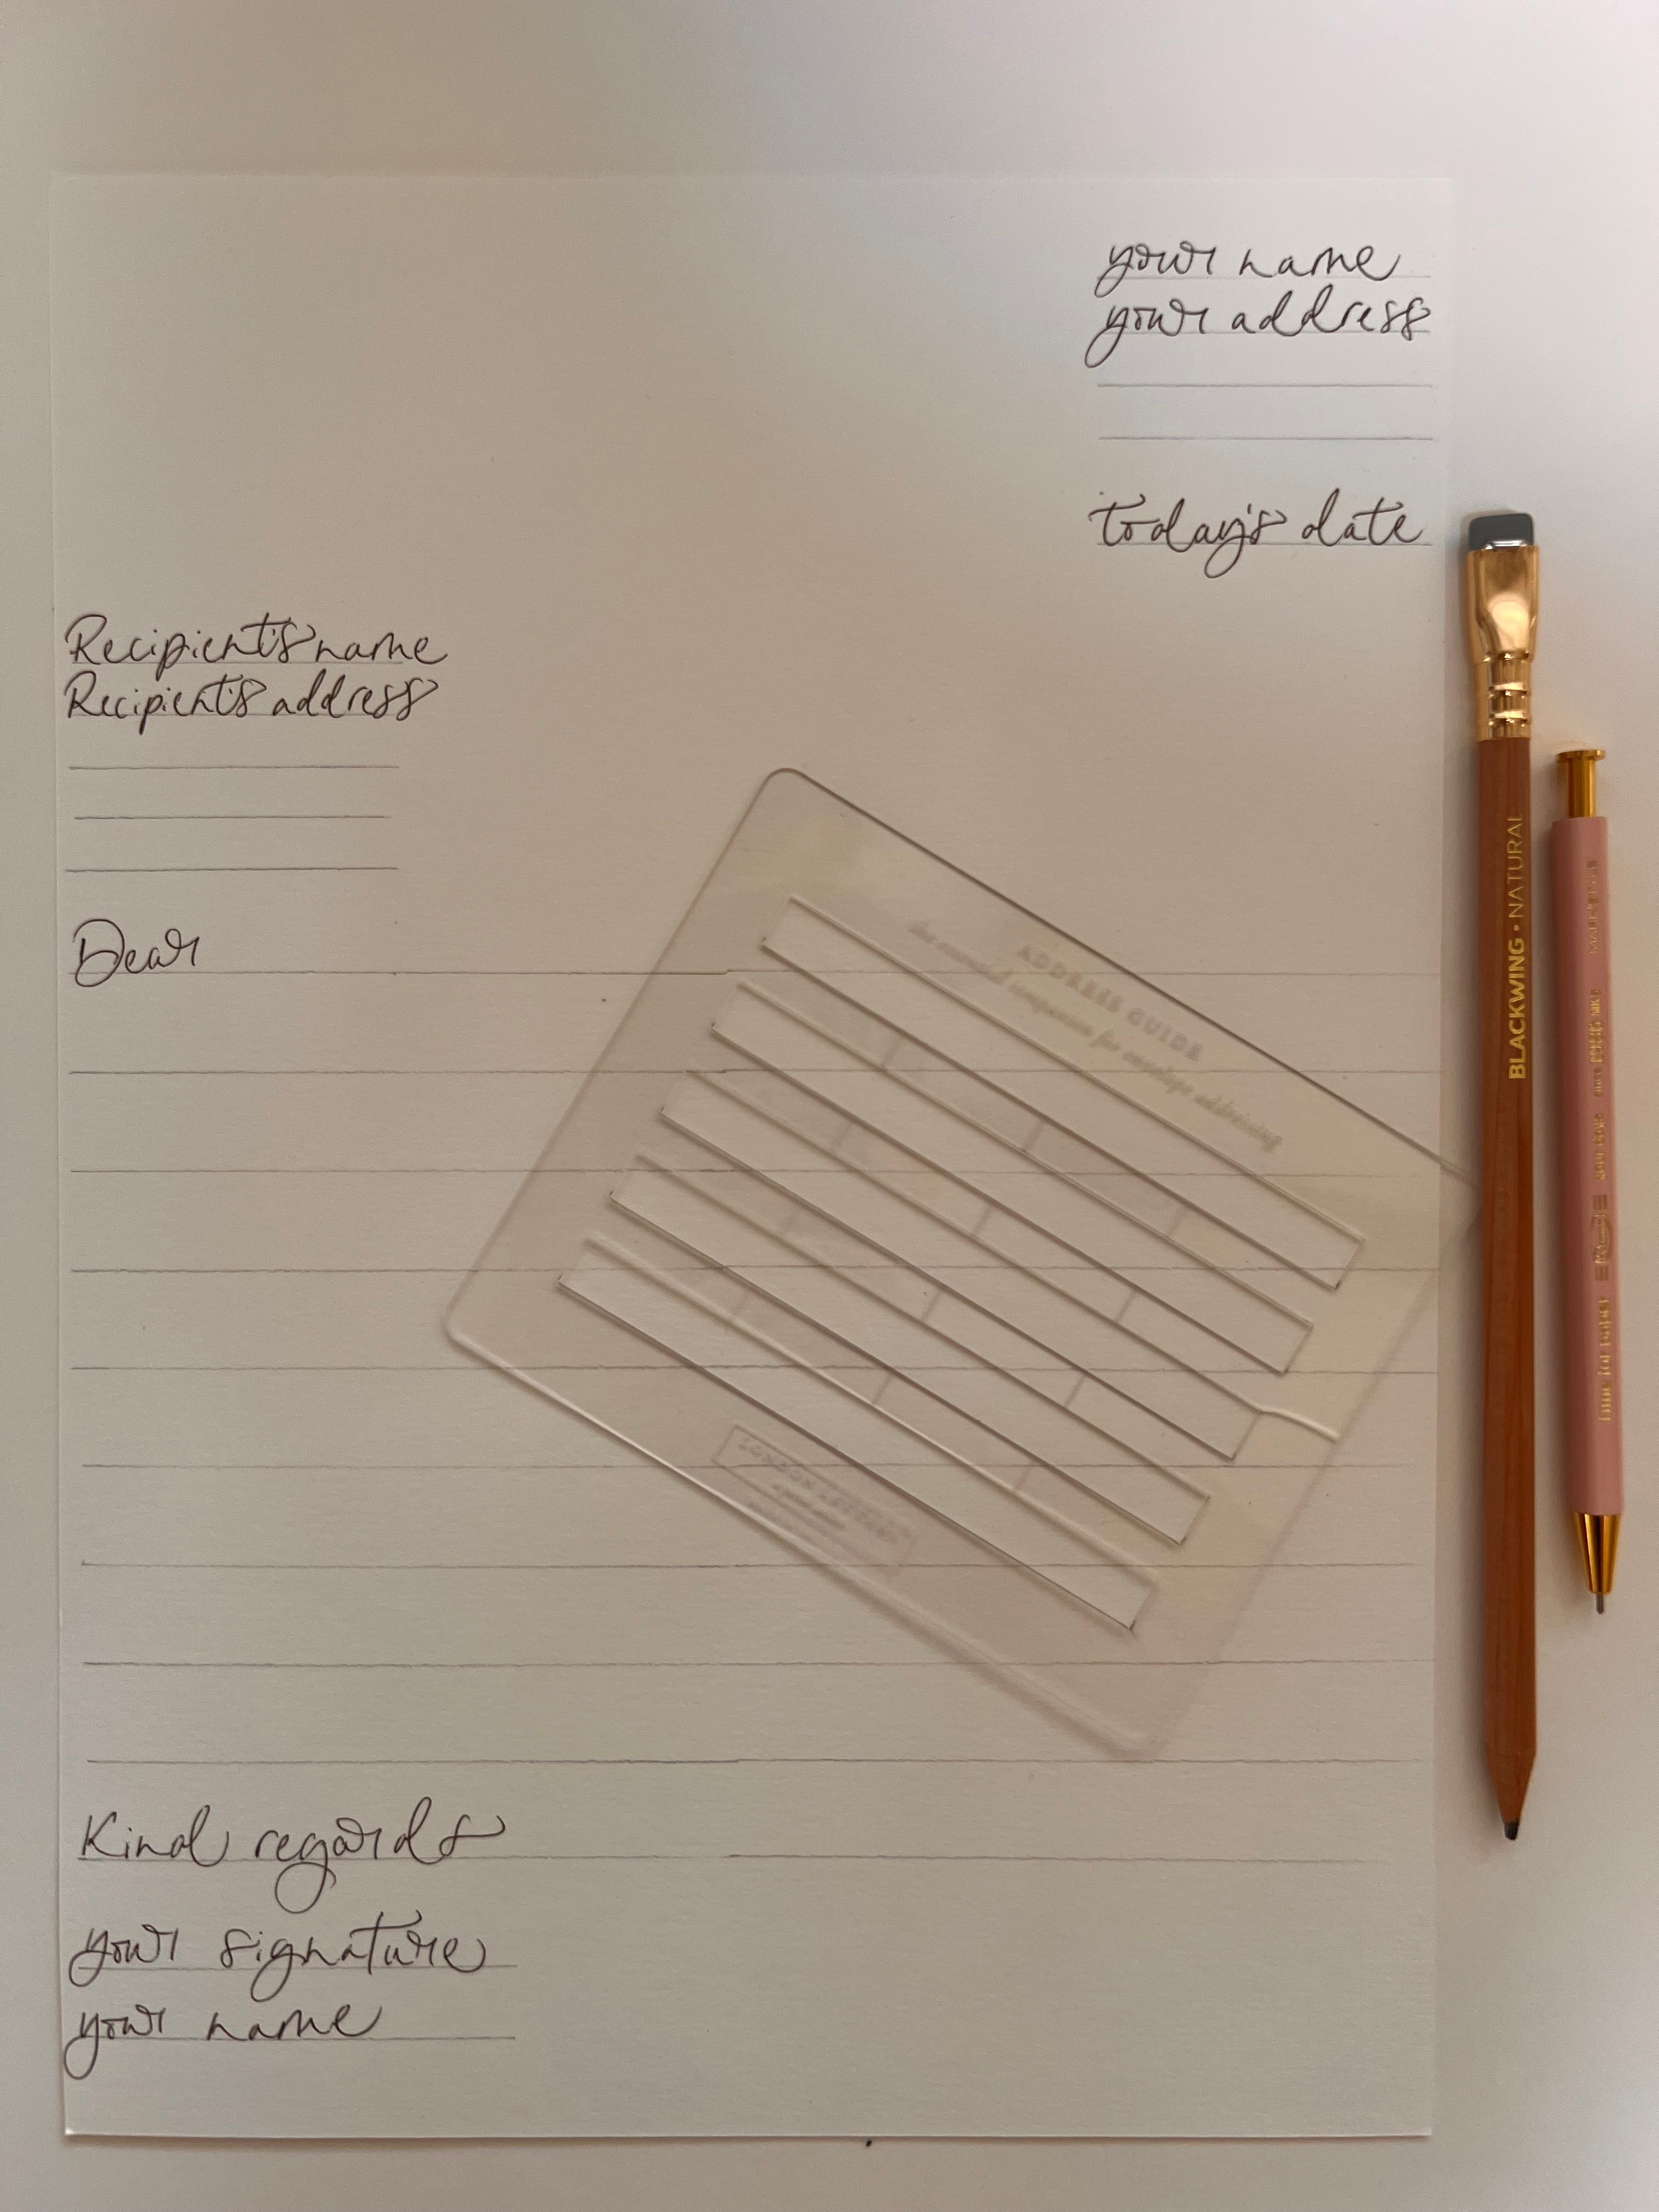 your name
your address
today's date
Recipient's name
Recipient's address
Dear
ADDRESS GUIDE
the essential companion for envelope addressing
BLACKWING • NATURAL
Kind regards
your signature
your name